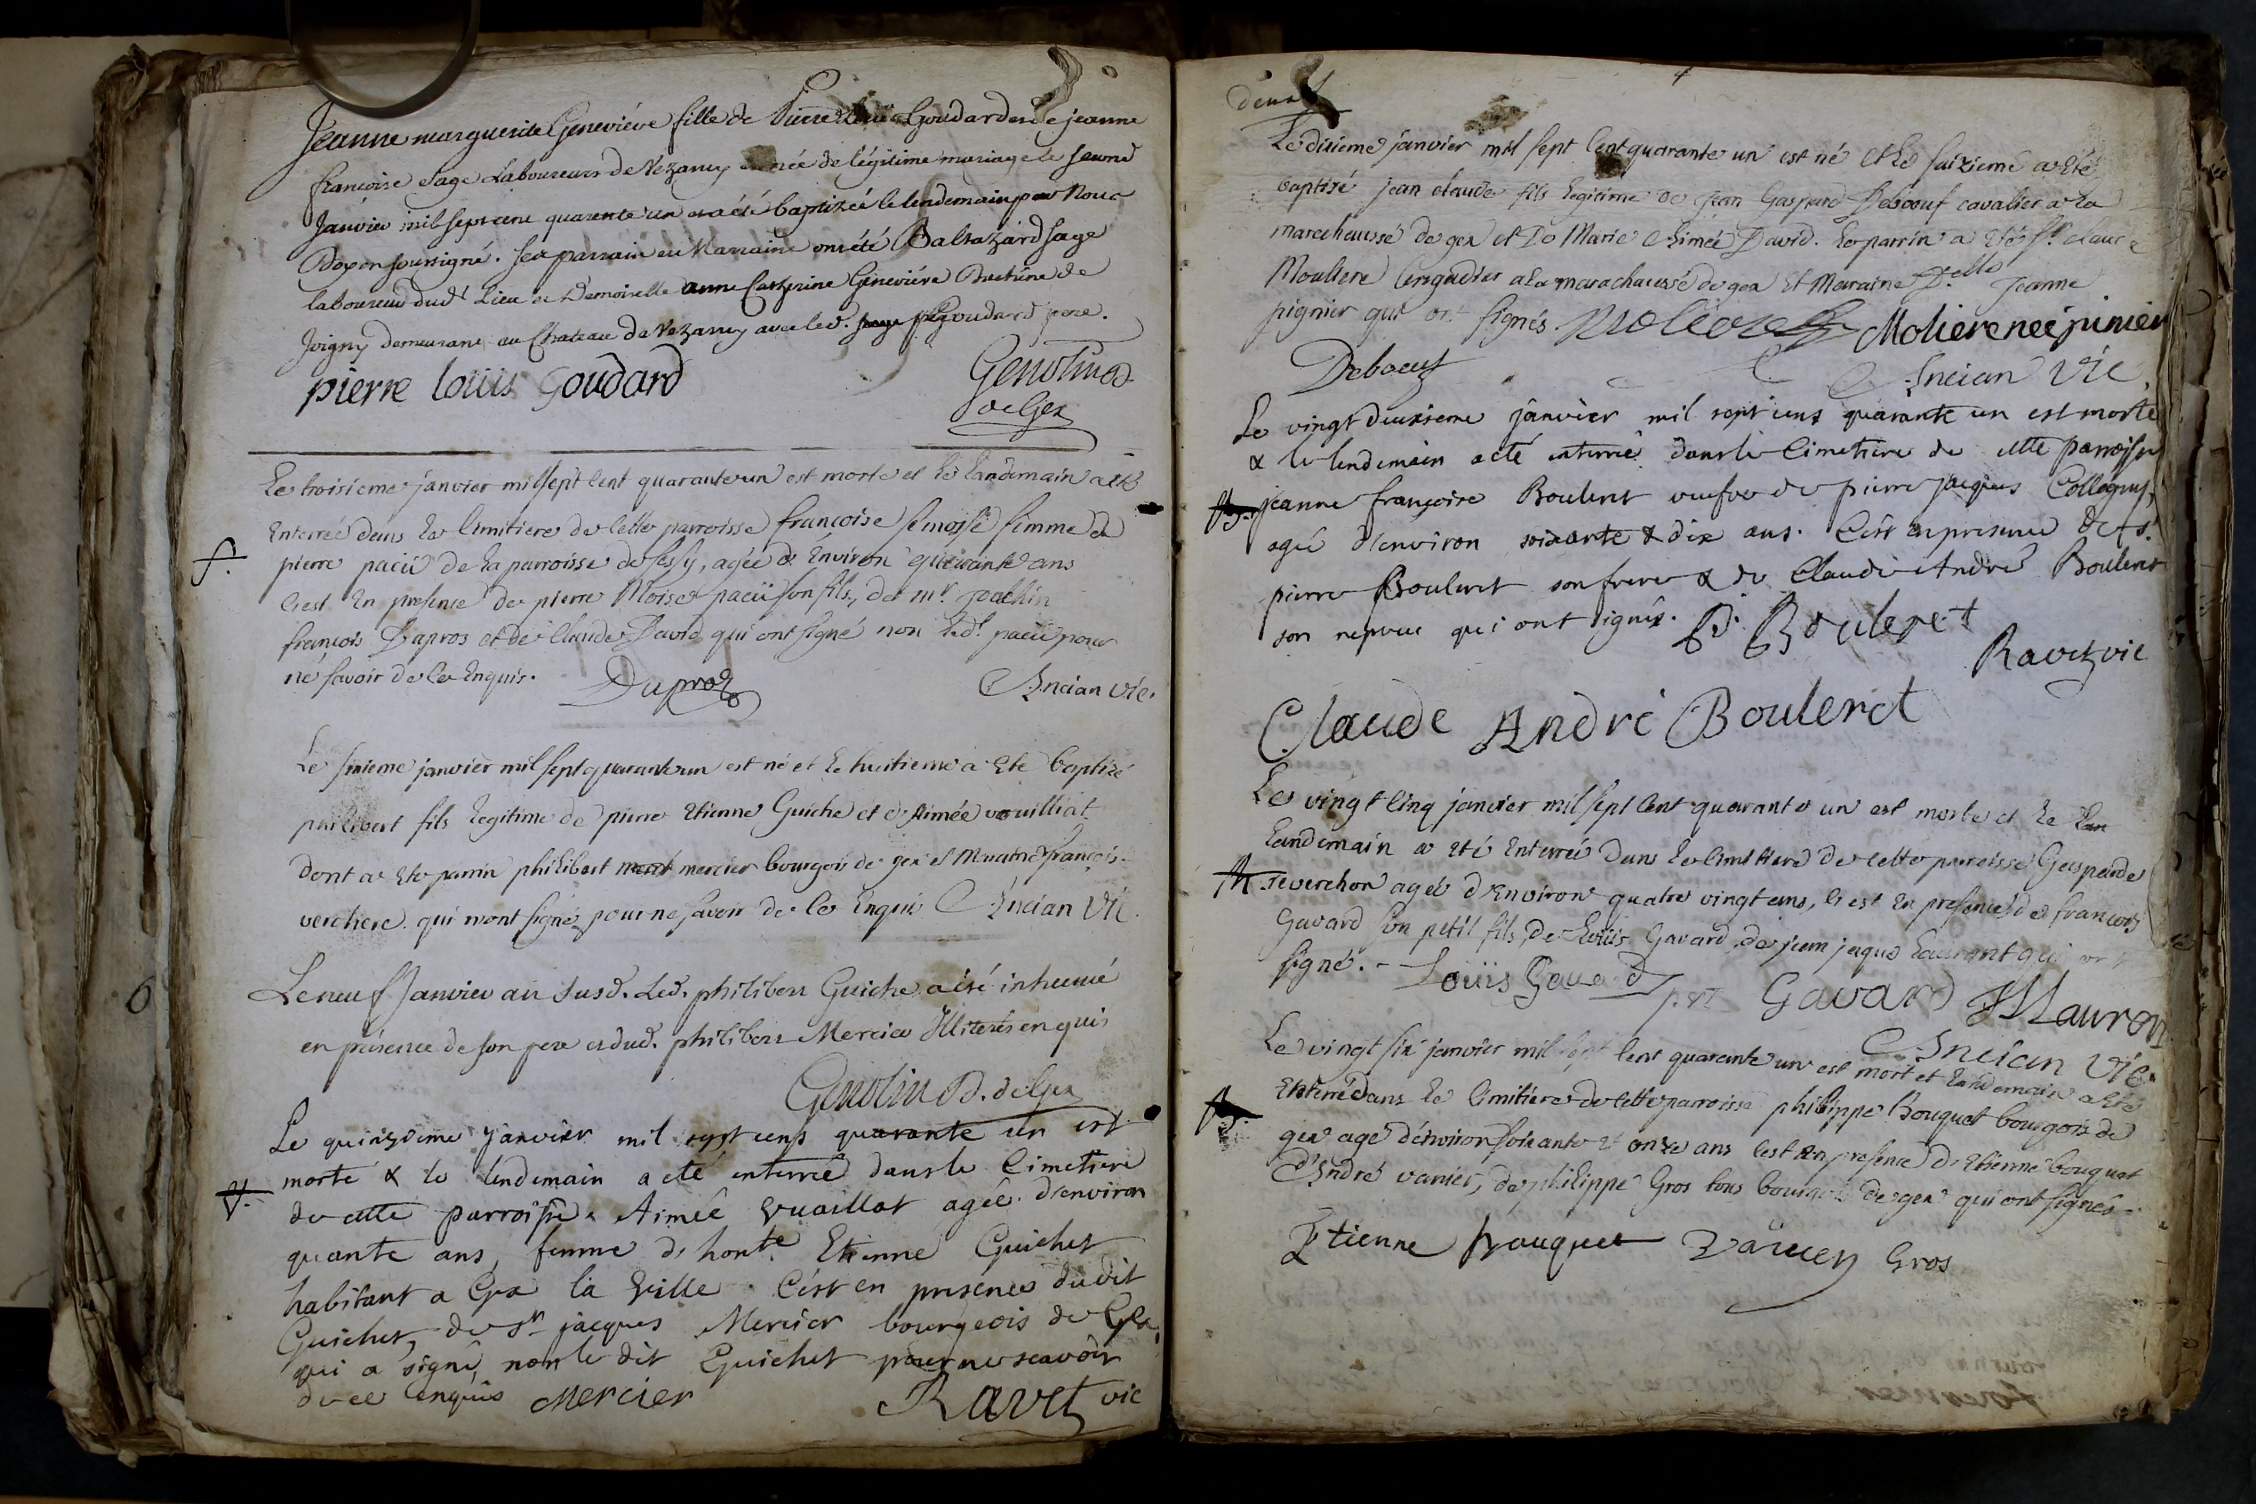 Jeanne marguerite Geneviéve fille de Pierre Loüis Goudard et de jeanne
françoise Sage Laboureurs de Vezancy est née de légitime mariage le second
Janvier mil sept cent quarante un et a été baptizée le lendemain par Nous
Doyen soussigné. Ses parrain et Marraine ont été Baltazard Sage
laboureur dud. Lieu et Demoiselle anne Catherine Geneviéve de
Joigny demeurant au Chateau de Vezancy avec led. Goudard pere.
pierre loüis Goudard
Genolin D.
de Gex
Le troisieme janvier mil sept Cent quarante un est morte et le landemain a eté
Enterrée dans le Cimitiere de Cette parroisse françoise femme de
pierre pacü de la parroisse de Cessy, agée d'Environ quarante ans
C'est En presence de pierre Moïse pacü son fils, de mr. joachin
françois Dupros et de Claude David qui ont signé non led. pacü pour
ne savoir de Ce Enquis.
Duproz
Ancian Vic.
Le sixieme janvier mil sept quarante un est né et le huitieme a Eté baptizé
philibert fils legitime de pierre Etienne Guiche et d'Aimée vouilliat
dont a Eté parrin philibert mercier bourgois de gex et
verchere qui n'ont signé pour ne savoir de Ce Enquis Ancian Vic.
Le neuf Janvier an susd. Led. philibert Guiche a été inhumé
en présence de son pere et dud. philibert Mercier Illiterés enquis
Genolin D. de Gex
Le quinzieme Janvier mil sept cens quarante un est
morte & le lendemain a eté enterrée dans le Cimetiere
de cette parroisse Aimée Vuaillat agée d'environ
quante ans, femme d'hon.te Etienne Guichet
habitant a Gex la Ville. C'est en presence dudit
Guichet, de Sr jacques Mercier bourgeois de Gex,
qui a signé, non le dit Guichet pour ne scavoir
de ce enquis Mercier
Ravet vic
deux
Le dixieme janvier mil sept Cent quarante un est né et le saizieme a Eté
baptizé jean claude fils legitime de jean Gaspard Deboeuf cavalier a la
marechaussé de gex et De Marie Aimée David. Le parrin a Eté Sr. claude
Mouliere brigadier a la marachaussé de gex Et Maraine D.elle Jeanne
pignier qui ont signés Moliere Moliere neé pinier
Deboeuf
Ancian Vic.
Le vingt deuxieme janvier mil sept cens quarante un est morte
& le lendemain a eté enterrée dans le Cimetiere de cette parroisse
jeanne françoise Bouleret veufve de pierre jacques
agée d'environ soixante & dix ans. C'est en presence de Sr.
pierre Bouleret son frere & de Claude André Bouleret
son nepveu qui ont signés. P. Bouleret
Ravet vic
Claude André Bouleret
Le vingt Cinq janvier mil sept Cent quarante un est morte et le
Landemain a eté Enterrée dans le Cimitiere de Cette parroisse Gasparde
reverchon agée d'Environ quatre vingt ans, C'est En presence de francois
Gavard son petit fils, de Loüis Gavard, de jean jaque Lauront qui ont
signé. Loüis Gavard Gavard JJ Lauron
Ancian Vic.
Le vingt six janvier mil sept Cent quarante un est mort et landemain a Eté
Enterré dans le Cimitiere de Cette parroisse philippe Bouquet bourgois de
gex agé d'environ soixante et onze ans C'est En presence d'Etienne bouquet
d'André vanier, de philippe Gros tous bourgois de gex qui ont signés
Etienne bouquet Gros